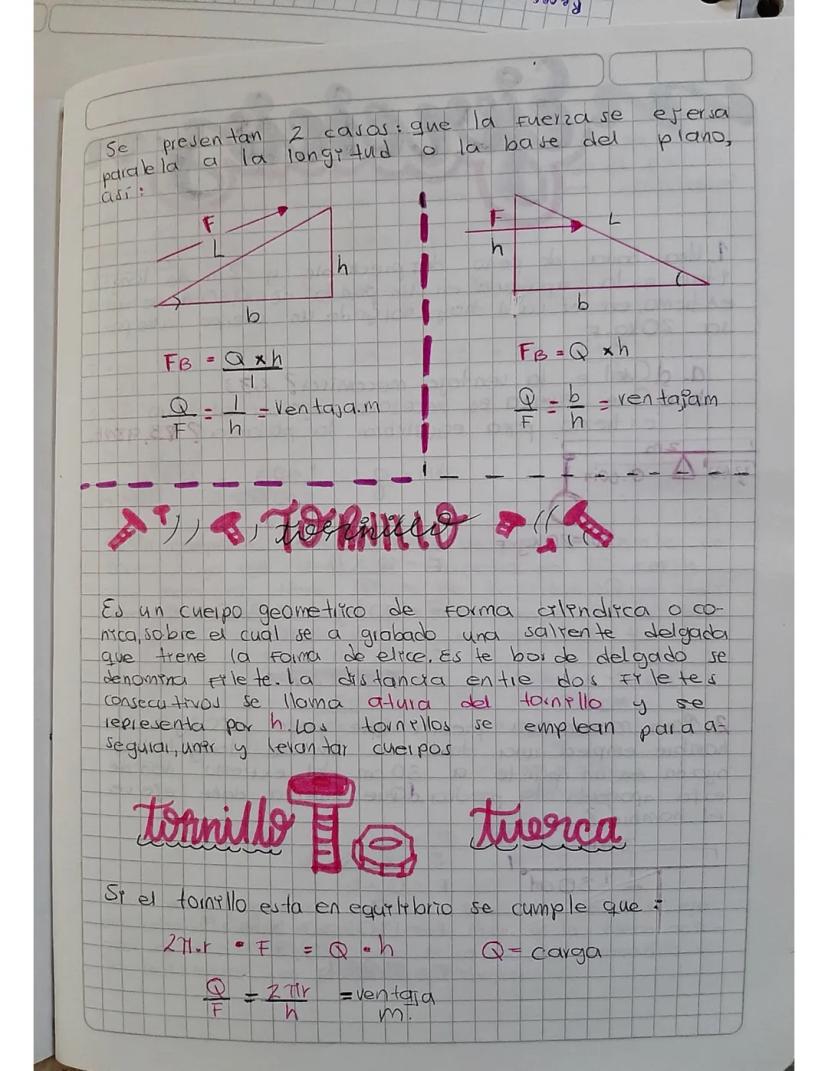 Reces
Se presentan 2 casos: que la fuerza se ejersa
paralela a la longitud o la base del plano,
así:
F
L
h
b
FB = Q x h
1
Q/F = 1/h = ventaja.m
F
h
L
b
FB = Q x h
Q/F = b/h = ventajam
TORNILLO
Es un cuerpo geometrico de forma cilindirca o co-
nica, sobre el cual se a grabado una saliente delgada
que tiene la forma de elice. Es te borde delgado se
denomina filete. la distancia entre dos filetes
consecutivos se llama altura del tornillo y se
representa por h. Los tornillos se emplean para a-
segurar, unir y levantar cuerpos
tornillo
tuerca
Si el tornillo esta en equilibrio se cumple que:
2π.r • F = Q • h
Q = carga
Q/F = 2πr/h = ventaja
m.